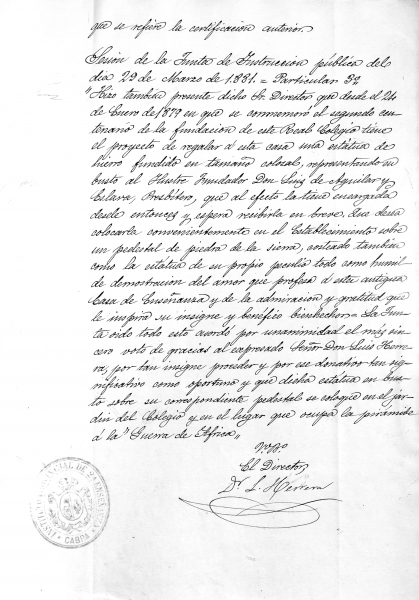 que se refiere la certificación anterior.
Sesión de la Junta de Instrucción pública del
día 29 de Marzo de 1881. = Particular 32
"Hizo tambien presente dicho Sr. Director que desde el 24
de Enero de 1879 en que se conmemoró el segundo cen-
tenario de la fundación de este Real Colegio tiene
el proyecto de regalar a esta casa una estátua de
hierro fundido en tamaño colosal, representando su
busto al Ilustre Fundador Don Luis de Aguilar y
Eslava, Presbítero, que al efecto la tiene encargada
desde entonces y espera recibirla en breve. Que desea
colocarla convenientemente en el Establecimiento sobre
un pedestal de piedra de la sierra, costeado tambien
como la estátua de su propio peculio todo como humil-
de demostracion del amor que profesa á esta antigua
Casa de Enseñanza y de la admiracion y gratitud que
le inspira su insigne y benéfico bienhechor = La Jun-
ta oido todo esto acordó por unanimidad el más sin-
cero voto de gracias al expresado Señor Don Luis Herre-
ra, por tan insigne proceder y por ese donativo tan sig-
nificativo como oportuno y que dicha estátua en bus-
to sobre su correspondiente pedestal se coloque en el jar-
din del Colegio y en el lugar que ocupa la pirámide
á la "Guerra de Africa"
Vº Bº
El Director,
Dr L. Herrera
CABRA